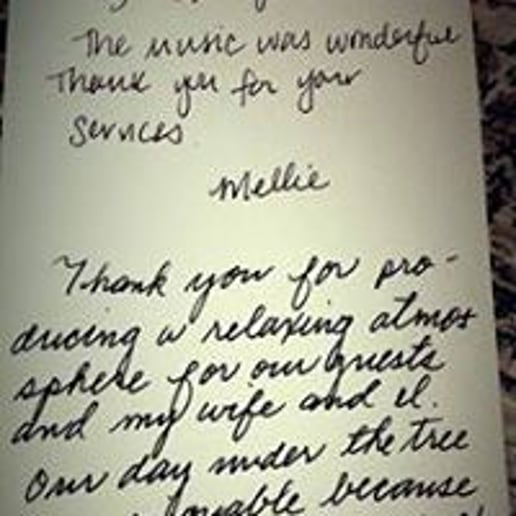 The music was wonderful
Thank you for your
Services
Mellie
Thank you for pro-
ducing a relaxing atmos
sphere for our guests
and my wife and I.
Our day under the tree
because